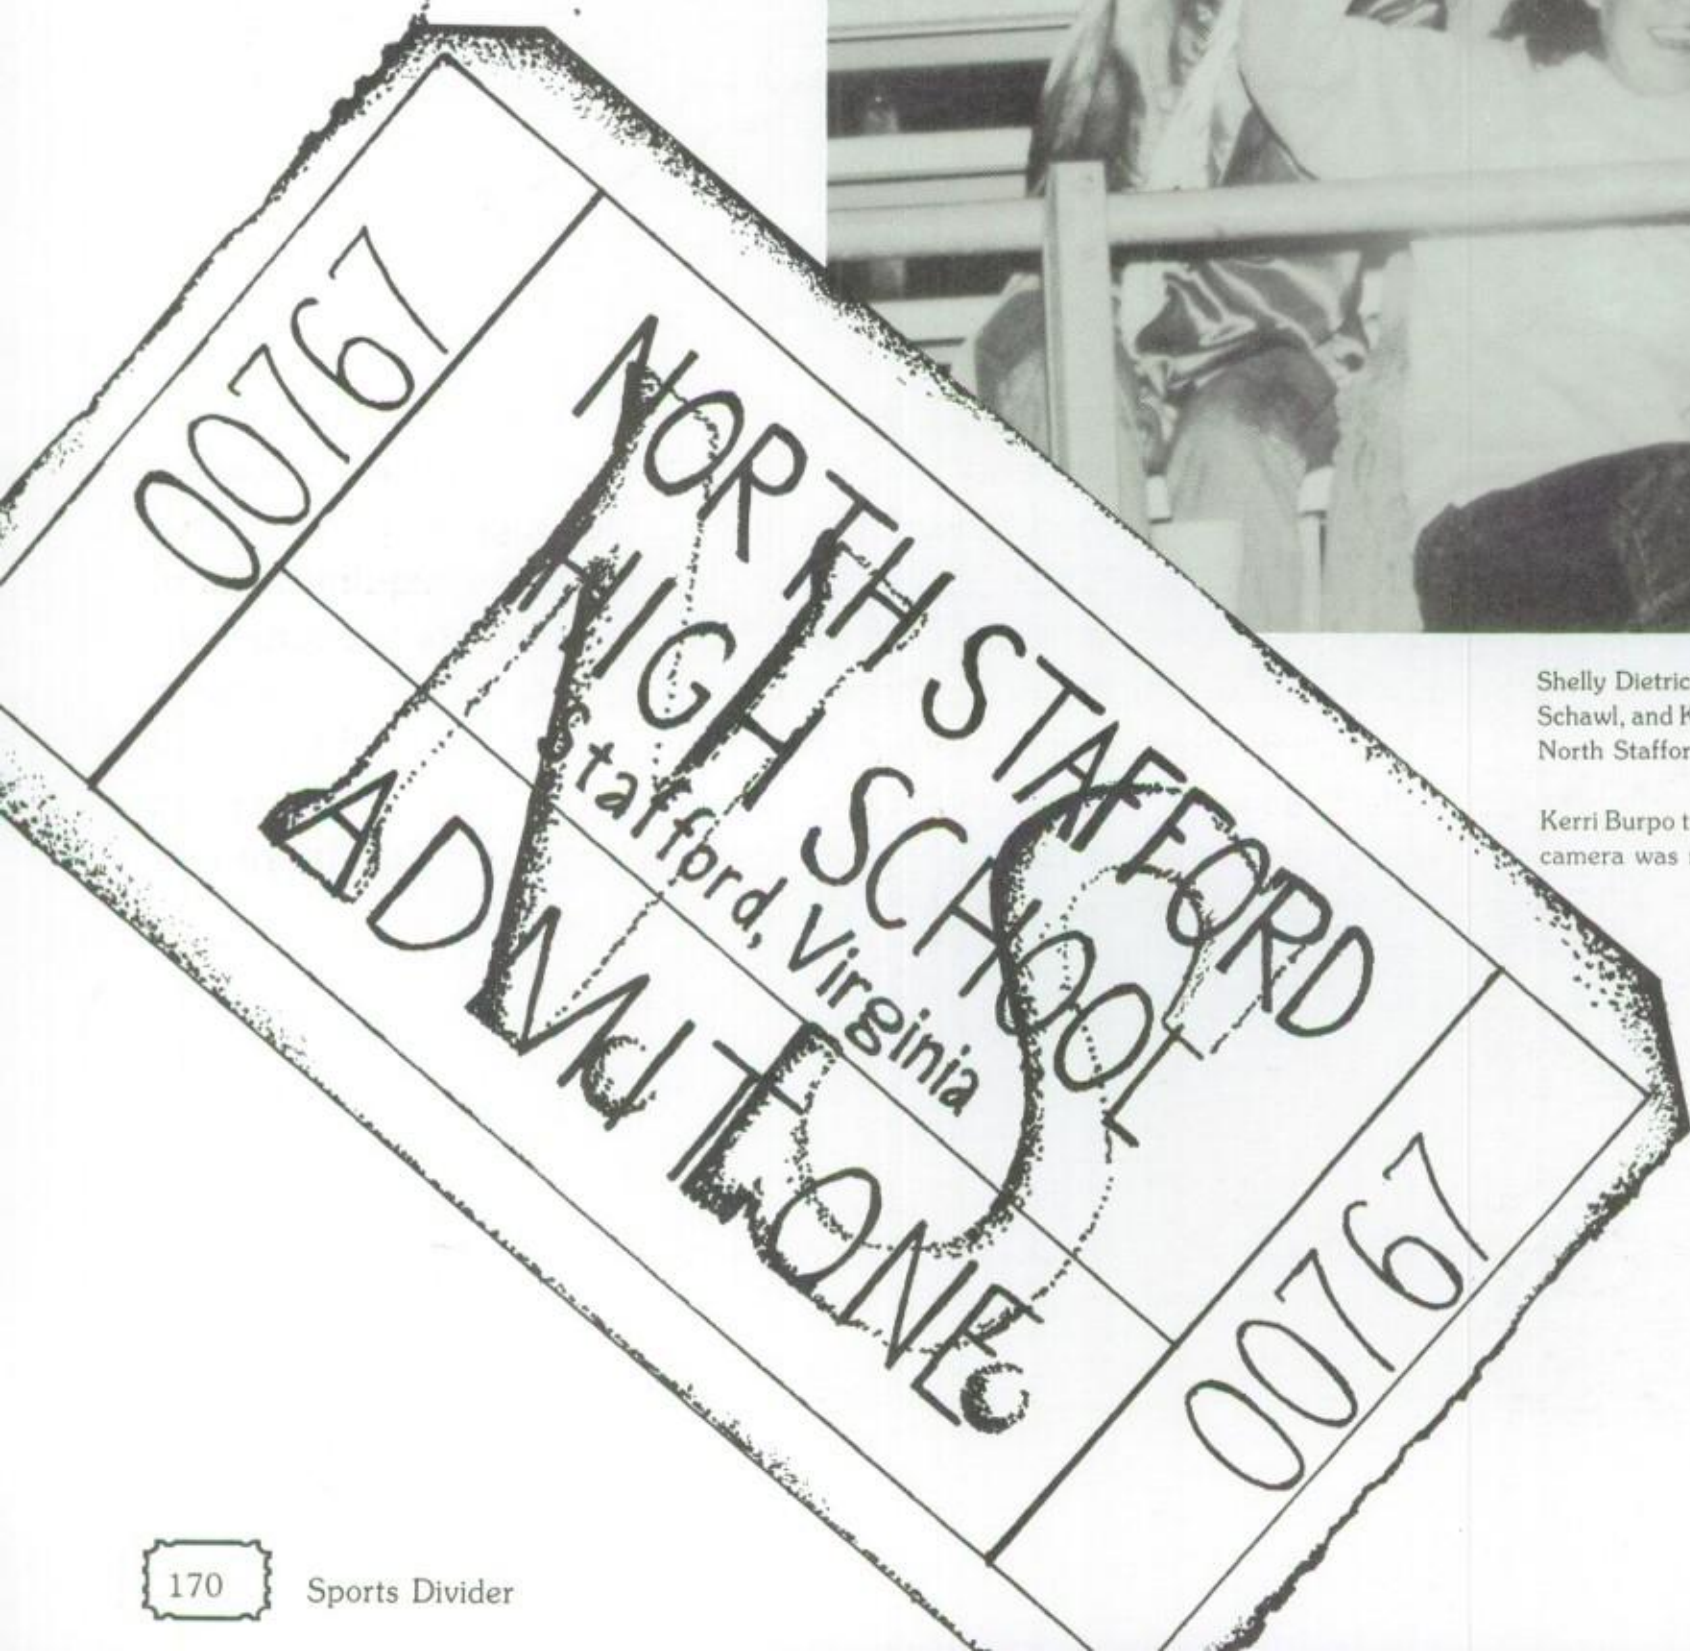 00767
NORTH STAFFORD
HIGH SCHOOL
Stafford, Virginia
ADMIT ONE
00767
NS
Shelly Dietric
Schawl, and K
North Staffor
Kerri Burpo t
camera was
170
Sports Divider